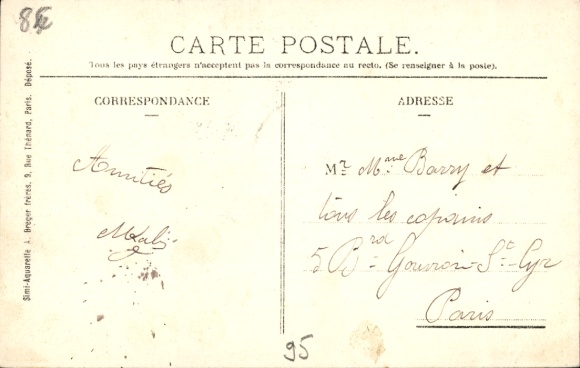 84
CARTE POSTALE.
Tous les pays étrangers n'acceptent pas la correspondance au recto. (Se renseigner à la poste).
CORRESPONDANCE
ADRESSE
Amitiés
Mr Mme Barry et
tous les copains
5 Brd Gouvion-St-Cyr
Paris
95
Simi-Aquarelle A. Breger frères, 9, Rue Thénard, Paris. Déposé.